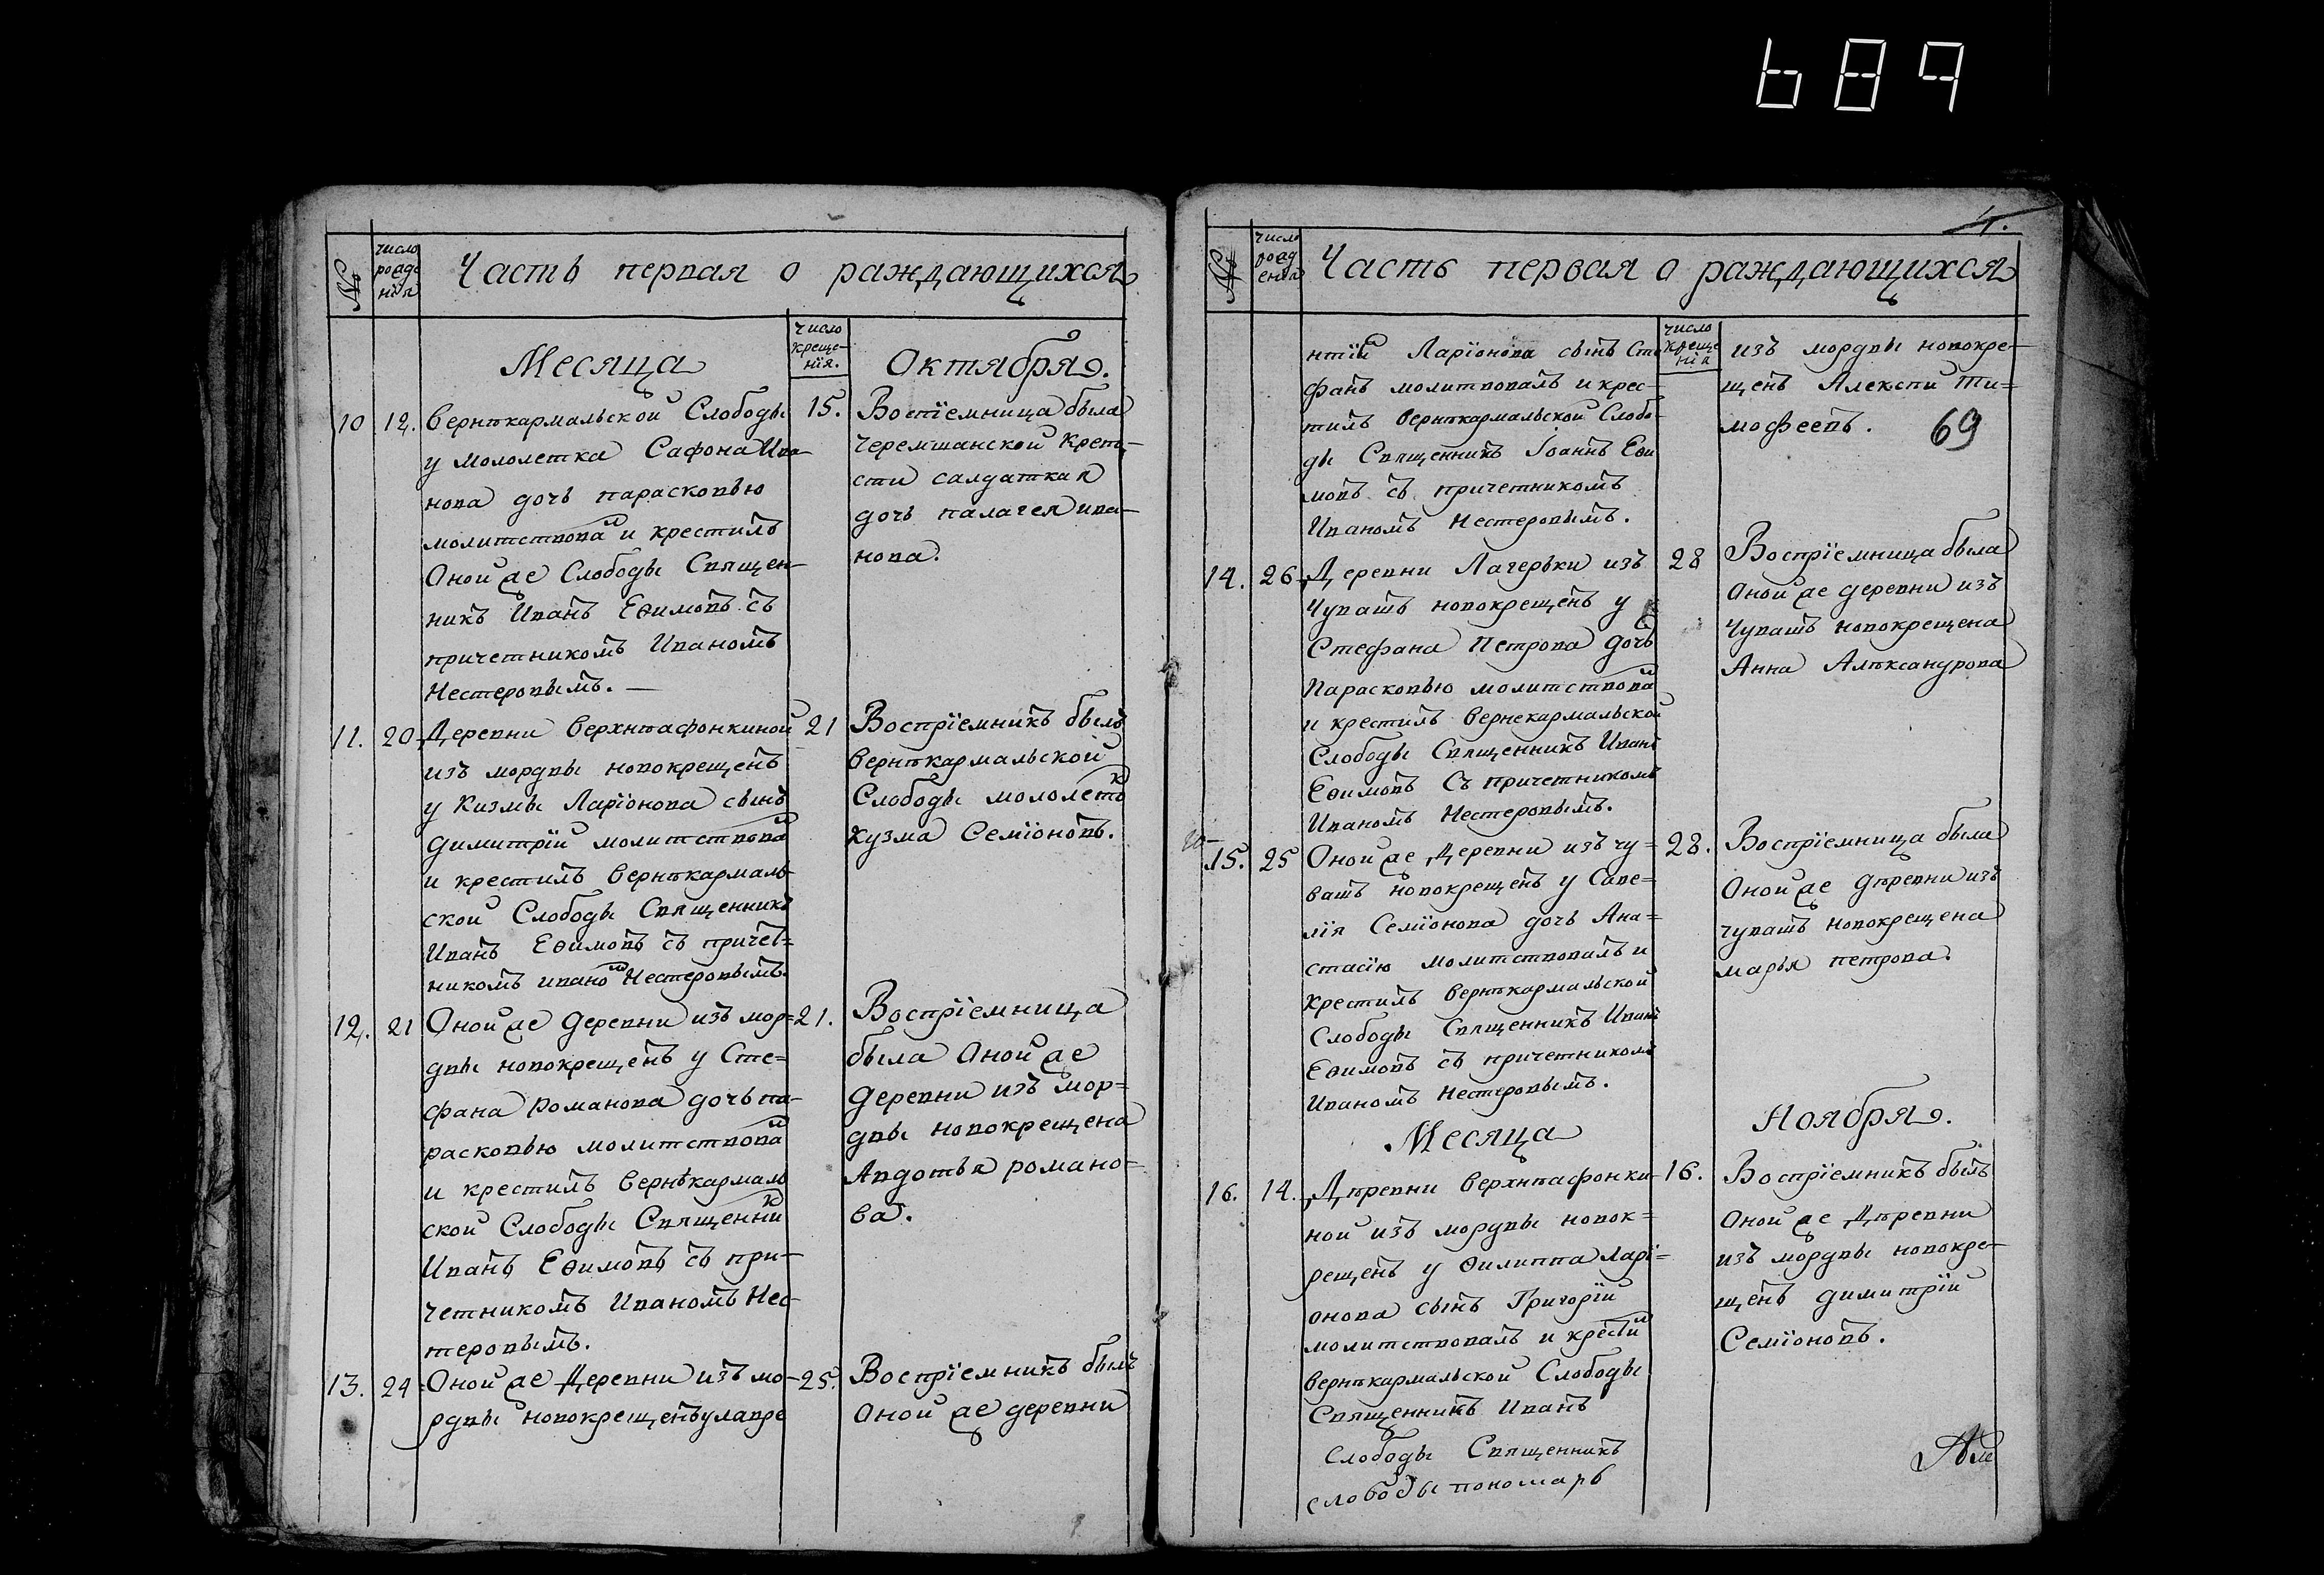 689
№
число рожде нїя
Часть первая о раждающихся
Месяца
число креще- нїя.
Октября.
10 12. Вернѣкармальской Слободы
у малолетка Сафона Ива-
нова дочь парасковью
молитствовал и крестилъ
Оной же Слободы Священ-
никъ Иванъ Ефимовъ съ
причетникомъ Иваномъ
Нестеровымъ. —
15. Воспїемница была
черемшанской Крепо-
сти салдатская
дочь палагея ива-
нова.
11. 20 Деревни верхнѣафонкиной
изъ мордвы новокрещенъ
у Кизмы Ларїонова сынъ
димитрїй молитствовал
и крестилъ вернѣкармаль-
ской Слободы Священникъ
Иванъ Ефимовъ съ причет=
никомъ иваном Нестеровымъ.
21 Воспрїемникъ былъ
вернѣкармальской
Слободы мололеток
кузма Семїоновъ.
12. 21 Оной же деревни изъ мор=
двы новокрещенъ у Сте=
фана Романова дочь па-
расковью молитствовал
и крестилъ вернѣкармаль
ской Слободы Священник
Иванъ Ефимовъ съ при-
четникомъ Иваномъ Нес-
теровымъ.
21. Воспрїемница
была Оной же
деревни изъ мор=
двы новокрещена
Авдотья романо=
ва.
13. 24 Оной же Деревни изъ мо-
рдвы новокрещенъ у лавре
25. Воспрїемникъ былъ
Оной же деревни
4.
№
число рожд енїя
Часть первая о раждающихся
нтїй Ларїонова сынъ Сте
фанъ молитвовалъ и крес-
тилъ вернѣкармальской Слобо-
ды Священникъ Іоаннъ Ефи
мовъ съ причетникомъ
Иваномъ Нестеровымъ.
число креще нїя
изъ мордвы новокре-
щенъ Алексѣй Ти=
мофеевъ.
69
14. 26 Деревни Лагерьки изъ
Чувашъ новокрещенъ у
Стефана Петрова дочь
Парасковью молитствовал
и крестилъ вернекармальской
Слободы Священникъ Иванъ
Ефимовъ Съ причетникомъ
Иваномъ Нестеровымъ.
28 Воспрїемница была
Оной же деревни изъ
Чувашъ новокрещена
Анна Алѣксандрова
15. 25 Оной же Деревни изъ чу=
вашъ новокрещенъ у Саве=
лїя Семїонова дочь Ана=
стасїю молитствовалъ и
крестилъ вернѣкармальской
Слободы Священникъ Иванъ
Ефимовъ съ причетникомъ
Иваномъ Нестеровымъ.
28. Воспрїемница была
Оной же дѣревни изъ
чувашъ новокрещена
марья петрова.
Месяца
Ноября.
16. 14. Дѣревни верхнѣафонки-
ной изъ мордвы новок=
рещенъ у Филиппа Ларї=
онова сынъ Григорїй
молитствовалъ и крестил
вернѣкармальской Слободы
Священникъ Иванъ
слободы Священникъ
слободы пономарь
16. Воспрїемникъ былъ
Оной же Дѣревни
изъ мордвы новокре-
щенъ димитрїй
Семїоновъ.